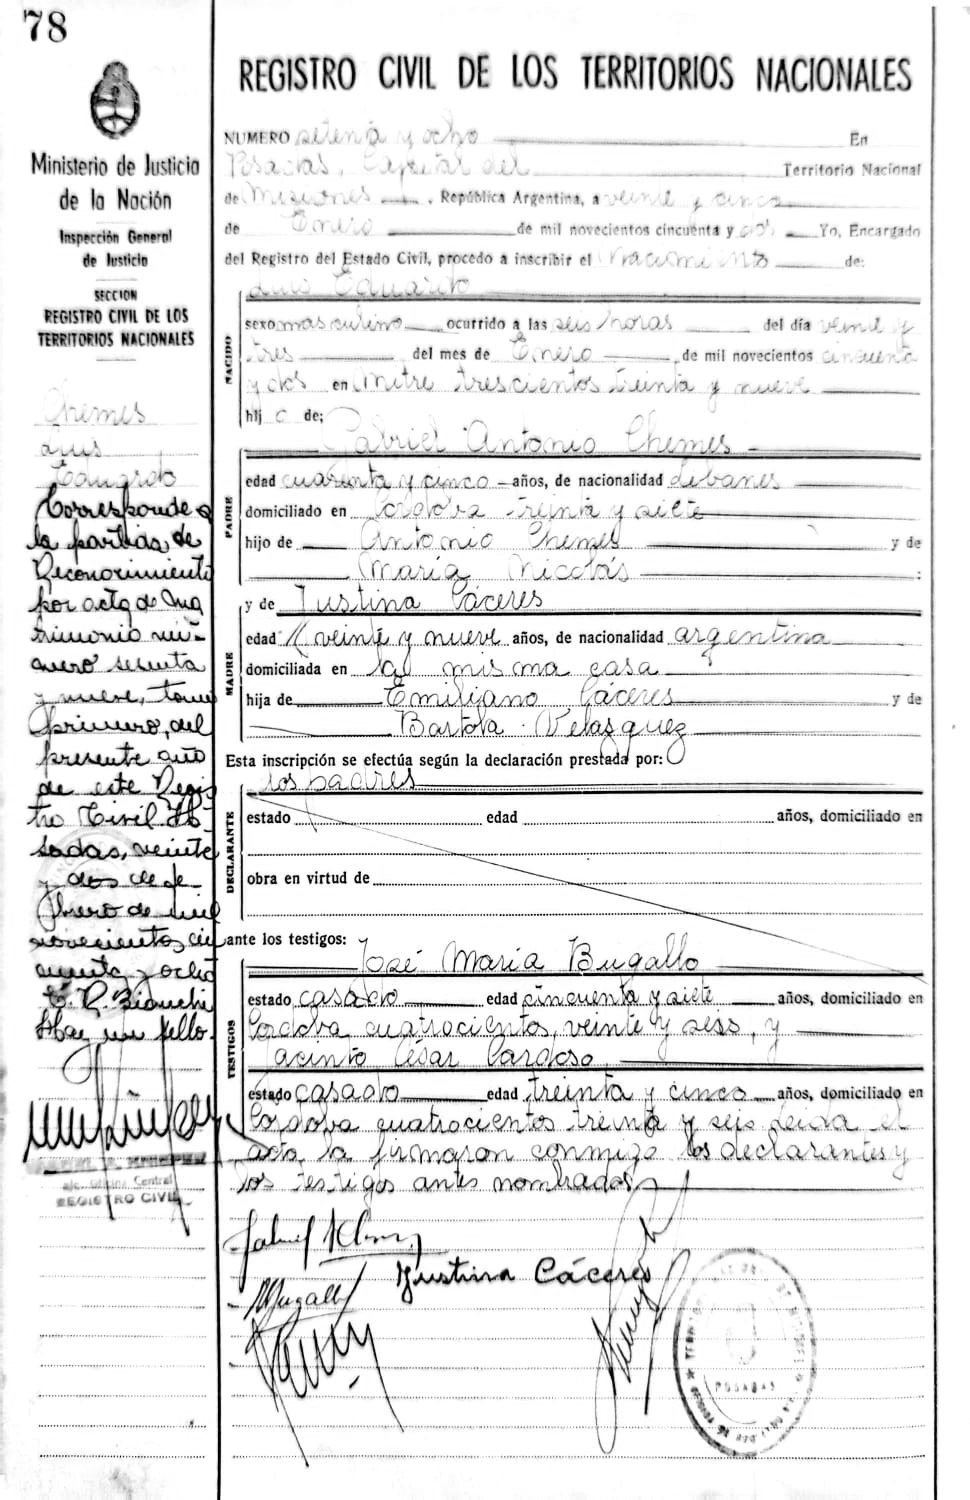 78
Ministerio de Justicia
de la Nación
Inspección General
de Justicia
SECCION
REGISTRO CIVIL DE LOS
TERRITORIOS NACIONALES
Chemes
Luis
Eduardo
Corresponde a
la partida de
Reconocimiento
por acta de Ma
trimonio nú-
mero sesenta
y nueve, tomo
primero, del
presente año
de este Regis
tro Civil Po
sadas, veinte
y dos de fe-
brero de mil
novecientos cin
cuenta y ocho
E. R. Bianchi
Hay un sello.
Oficina Central
REGISTRO CIVIL
REGISTRO CIVIL DE LOS TERRITORIOS NACIONALES
NUMERO setenta y ocho En
Posadas, Capital del Territorio Nacional
de Misiones, República Argentina, a veinte y cinco
de Enero de mil novecientos cincuenta y dos Yo, Encargado
del Registro del Estado Civil, procedo a inscribir el nacimiento de:
Luis Eduardo
NACIDO
sexo masculino ocurrido a las seis horas del día veinte y
tres del mes de Enero de mil novecientos cincuenta
y dos en Mitre trescientos treinta y nueve
hijo de;
Gabriel Antonio Chemes
PADRE
edad cuarenta y cinco años, de nacionalidad Libanes
domiciliado en Córdoba treinta y siete
hijo de Antonio Chemes y de
María Nicolás :
y de Justina Cáceres
MADRE
edad veinte y nueve años, de nacionalidad argentina
domiciliada en la misma casa
hija de Emiliano Cáceres y de
Bartola Velazquez
Esta inscripción se efectúa según la declaración prestada por:
los padres
DECLARANTE
estado edad años, domiciliado en
obra en virtud de
ante los testigos:
José María Bugallo
TESTIGOS
estado casado edad cincuenta y siete años, domiciliado en
Córdoba cuatrocientos veinte y seis, y
Jacinto César Cardoso
estado casado edad treinta y cinco años, domiciliado en
Córdoba cuatrocientos treinta y seis Leida el
acta la firmaron conmigo los declarantes y
los testigos antes nombrados
Justina Cáceres
POSADAS